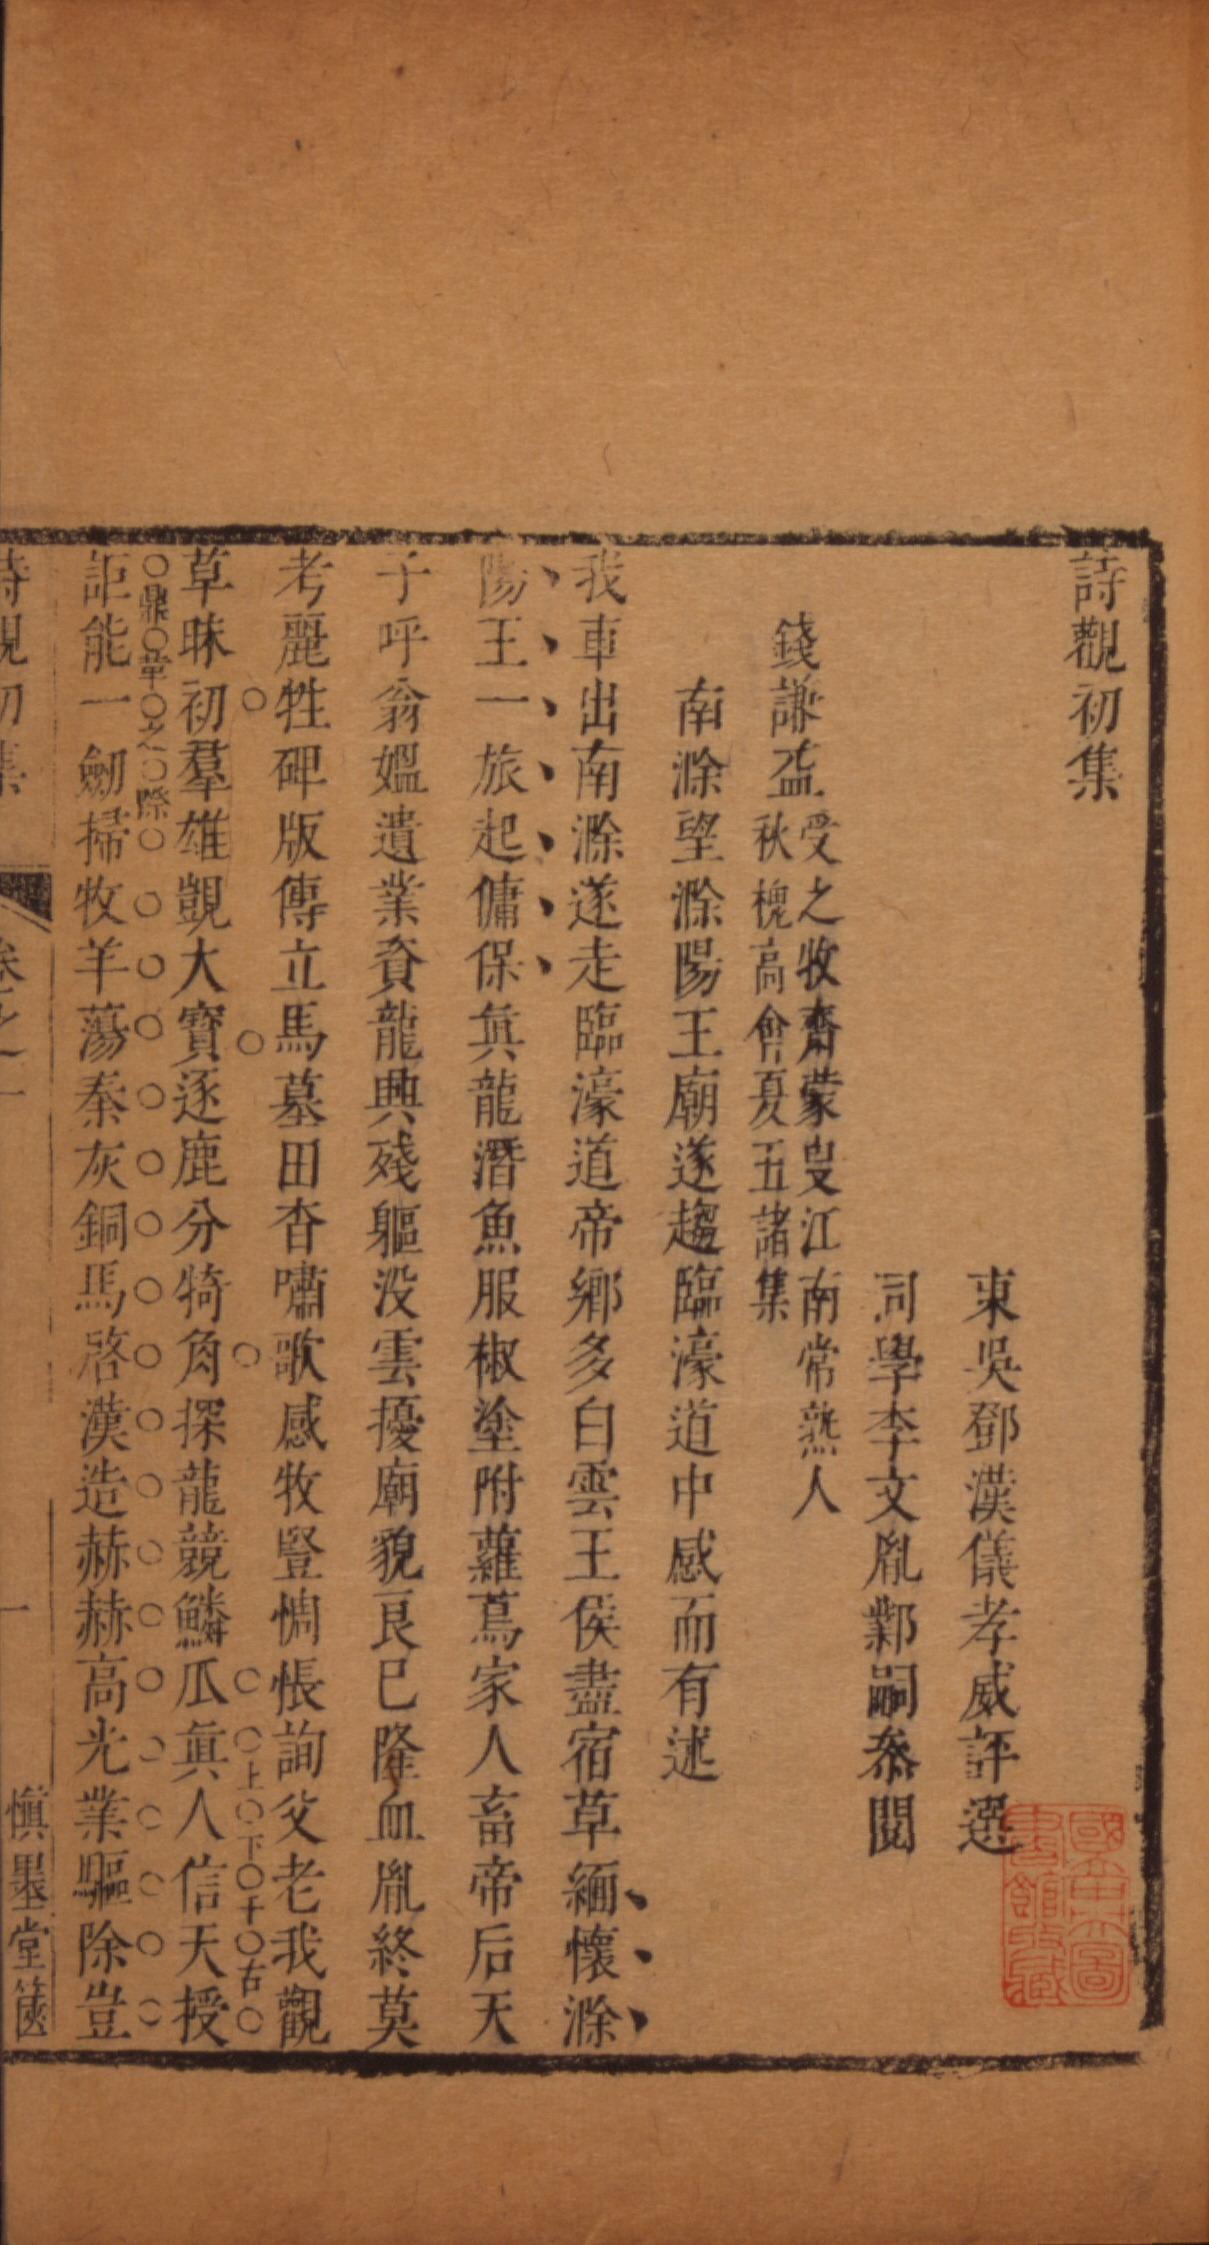 詩觀初集
東吳鄧漢儀孝威評選
同學李文胤鄴嗣叅閱
錢謙益
受之牧齋蒙叟江南常熟人
秋槐高會夏五諸集
南滁望滁陽王廟遂趨臨濠道中感而有述
我車出南滁遂走臨濠道帝鄉多白雲王侯盡宿草緬懷滁
陽王一旅起傭保眞龍潛魚服椒塗附蘿蔦家人畜帝后天
子呼翁媼遺業資龍興殘軀没雲擾廟貌良已隆血胤終莫
考麗牲碑版傳立馬墓田杳嘯歌感牧豎惆悵詢父老我觀
上下千古
草昧初羣雄覬大寶逐鹿分犄角探龍競鱗瓜眞人信天授
鼎革之際
詎能一劒掃牧羊蕩秦灰銅馬啓漢造赫赫高光業驅除豈
詩觀初集
卷之一
一
愼墨堂篋
國立中央圖書館收藏